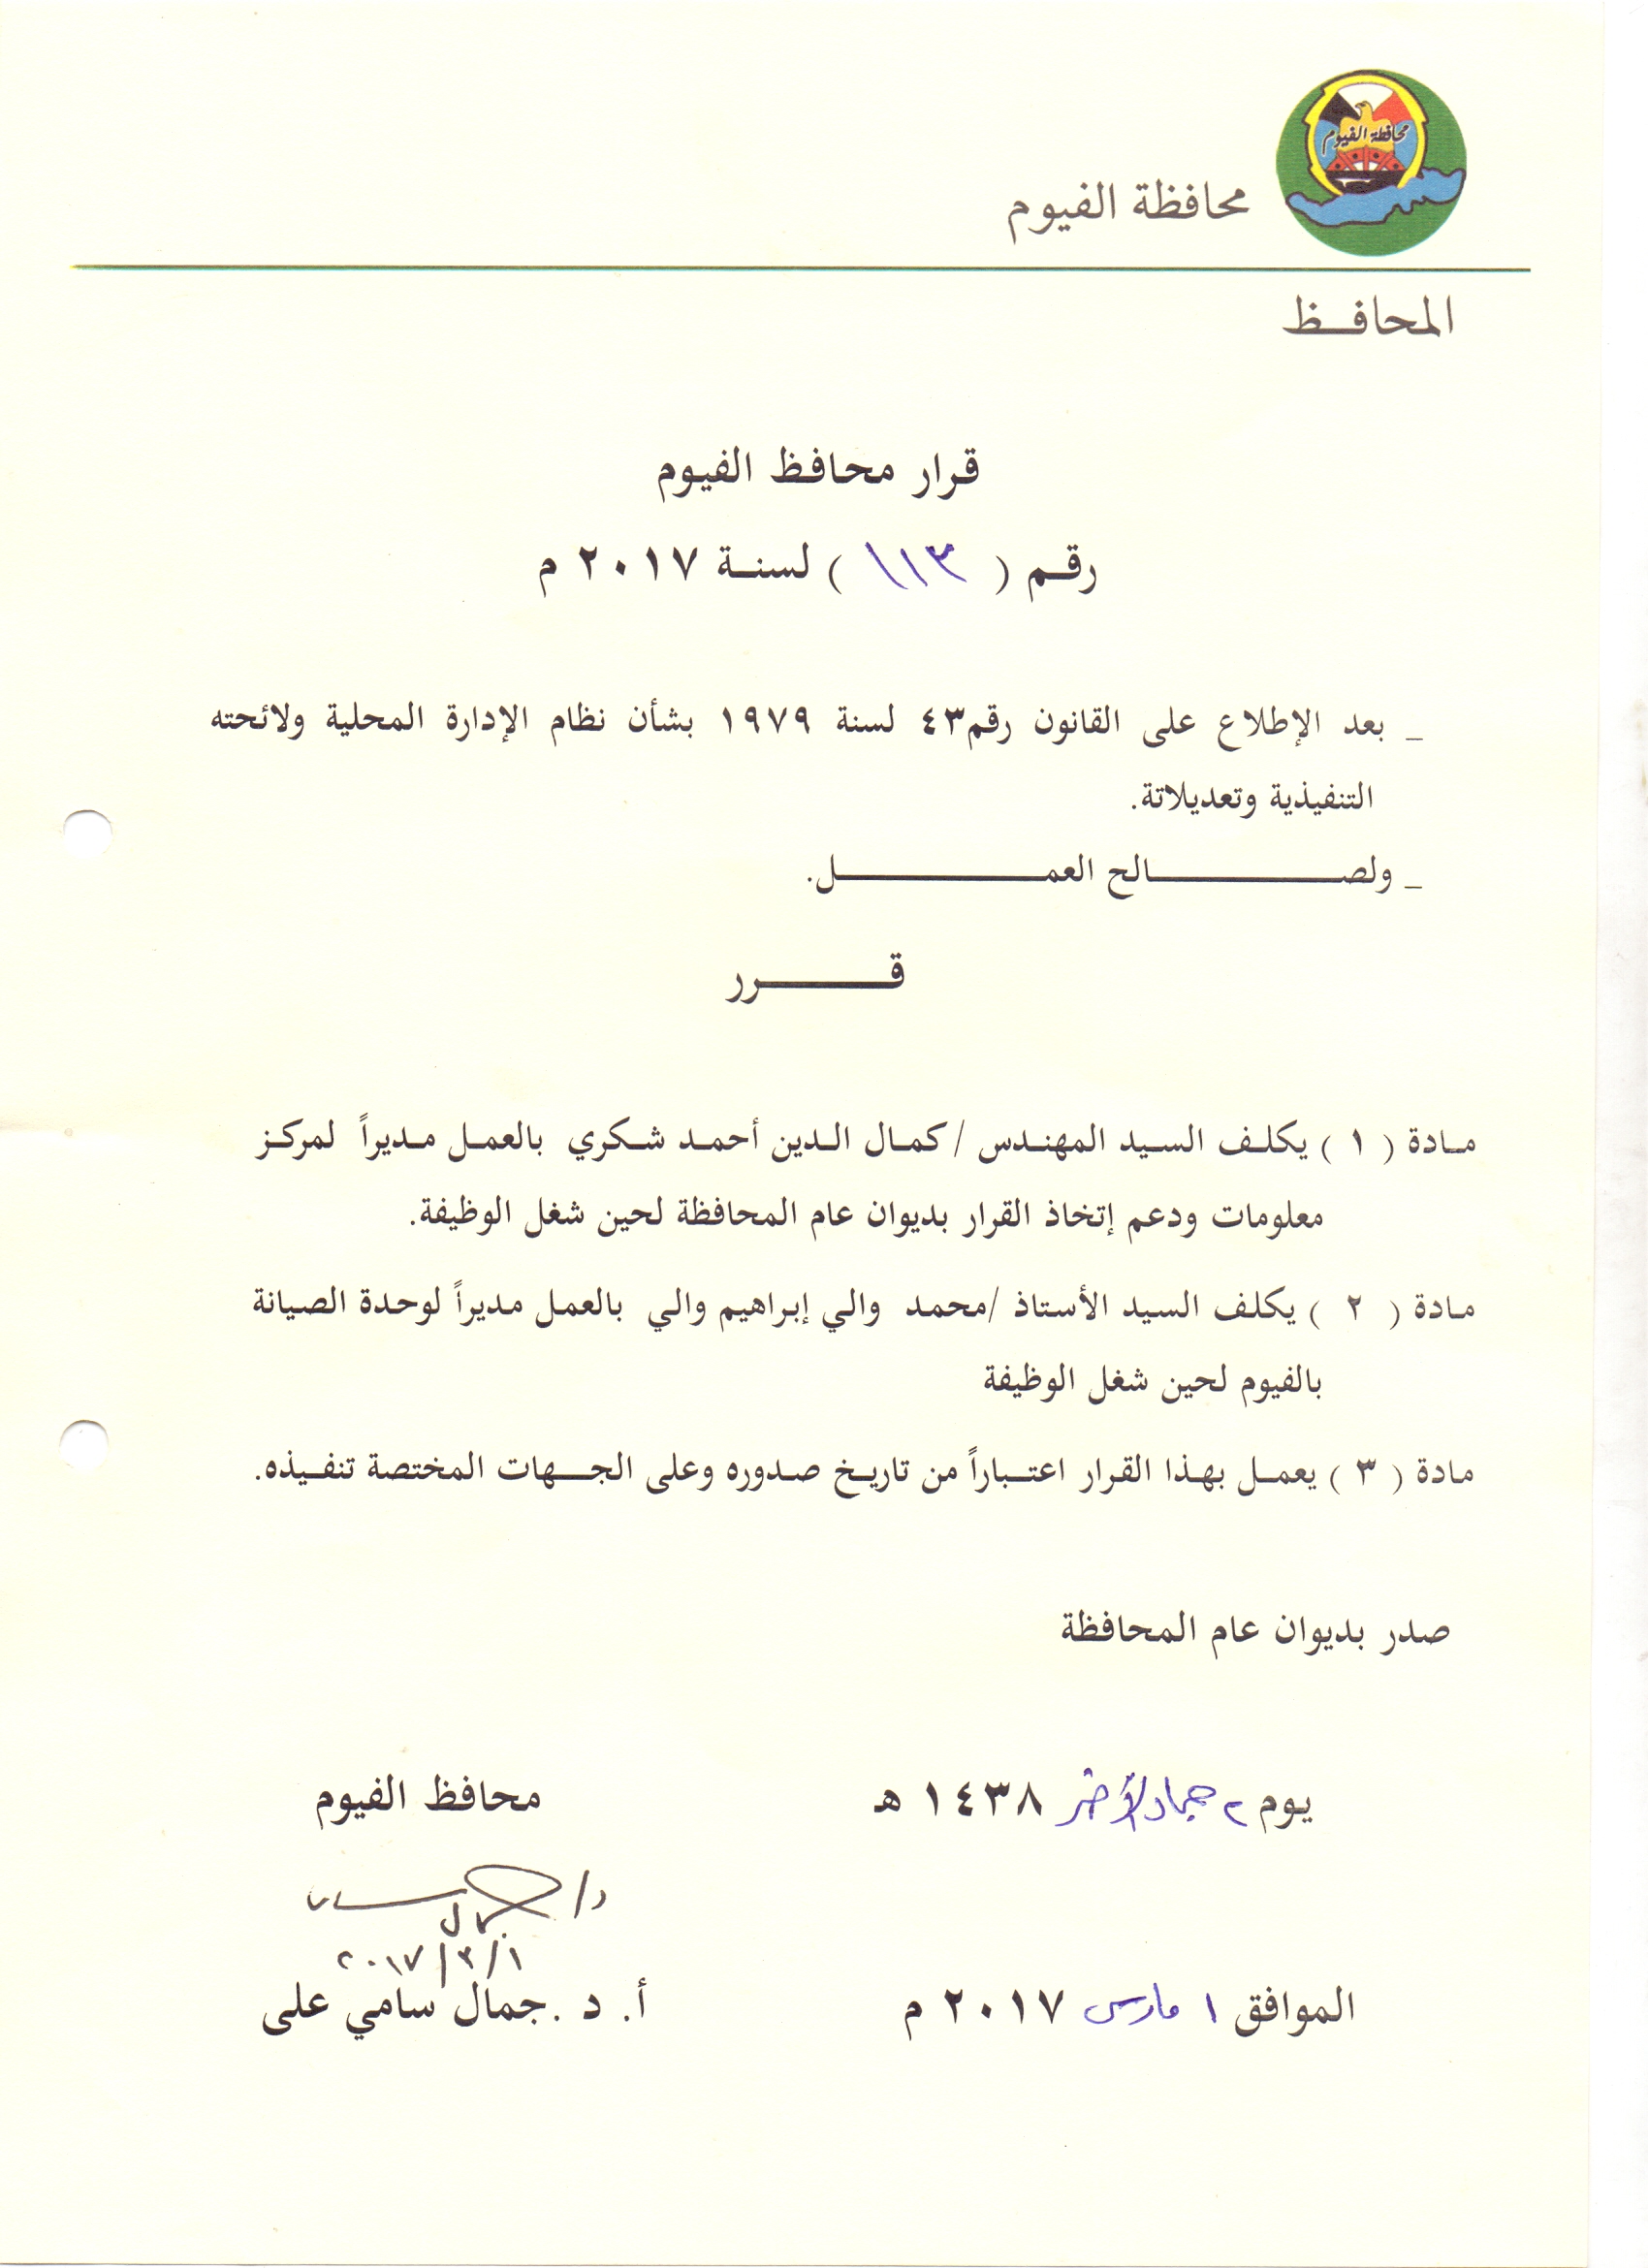 محافظة الفيوم
محافظة الفيوم
المحافظ
قرار محافظ الفيوم
رقم ( ١١٣ ) لسنة ٢٠١٧ م
_ بعد الإطلاع على القانون رقم٤٣ لسنة ١٩٧٩ بشأن نظام الإدارة المحلية ولائحته
التنفيذية وتعديلاتة.
_ ولصالح العمل.
قرر
مادة ( ١ ) يكلف السيد المهندس /كمال الدين أحمد شكري بالعمل مديراً لمركز
معلومات ودعم إتخاذ القرار بديوان عام المحافظة لحين شغل الوظيفة.
مادة ( ٢ ) يكلف السيد الأستاذ /محمد والي إبراهيم والي بالعمل مديراً لوحدة الصيانة
بالفيوم لحين شغل الوظيفة
مادة ( ٣ ) يعمل بهذا القرار اعتباراً من تاريخ صدوره وعلى الجهات المختصة تنفيذه.
صدر بديوان عام المحافظة
يوم ٢ جماد الآخر ١٤٣٨ هـ
محافظ الفيوم
د/ جمال سامي
٢٠١٧/٣/١
الموافق ١ مارس ٢٠١٧ م
أ. د .جمال سامي على